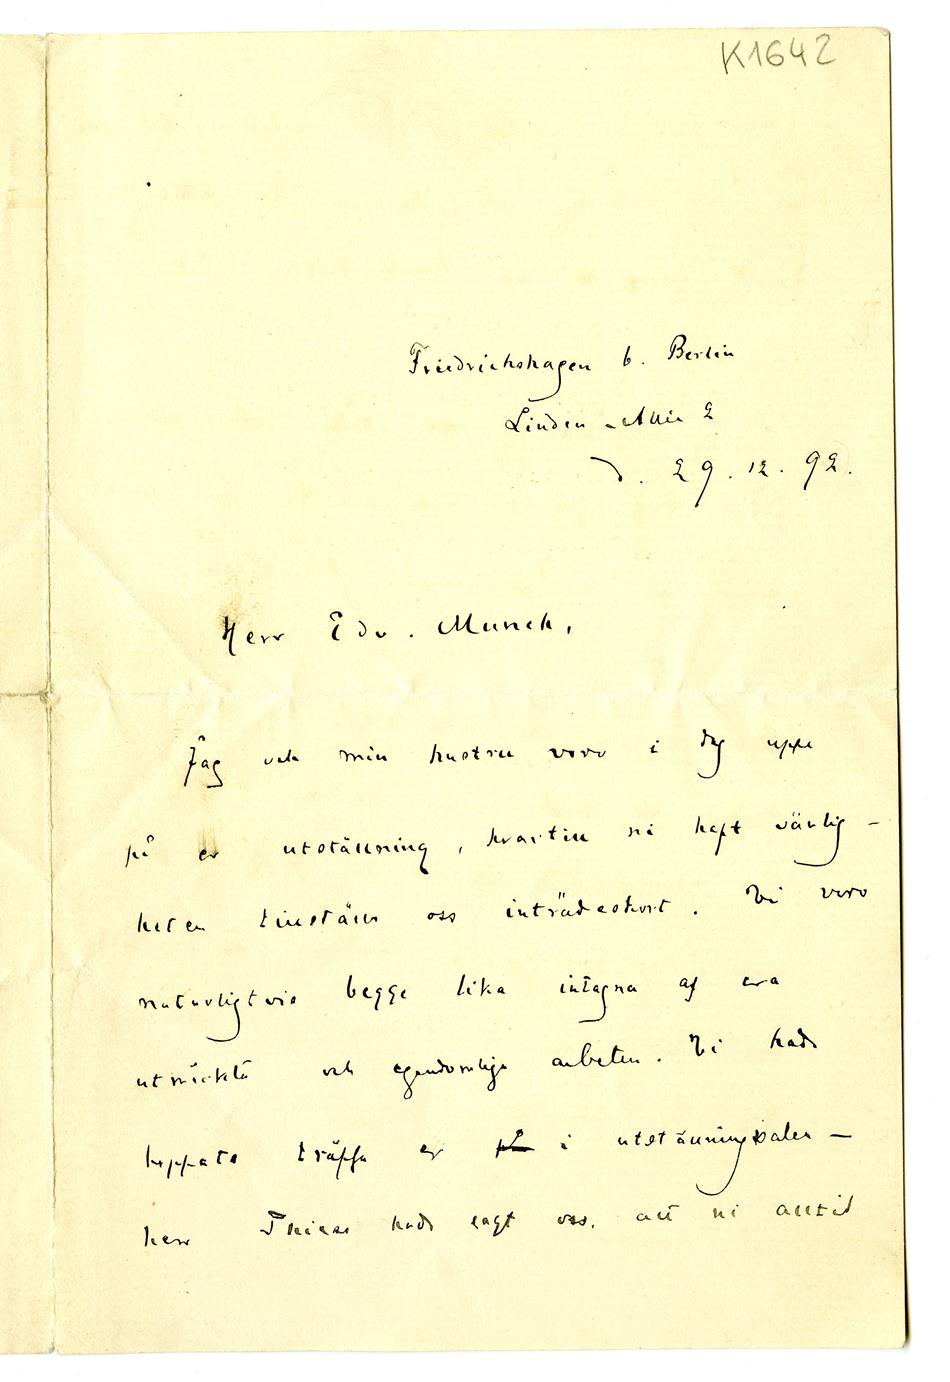 K1642
Friedrichshagen b. Berlin
Linden-Allée 2
d. 29.12.92.
Herr Edv. Munch,
Jag och min hustru voro i dag uppe
på er utställning, hvartill ni haft vänlig-
heten tillställa oss inträdeskort. Vi voro
naturligtvis begge lika intagna af era
utmärkta och egendomliga arbeten. Vi hade
hoppats träffa er på i utställningssalen –
herr Thiese hade sagt oss, att ni alltid